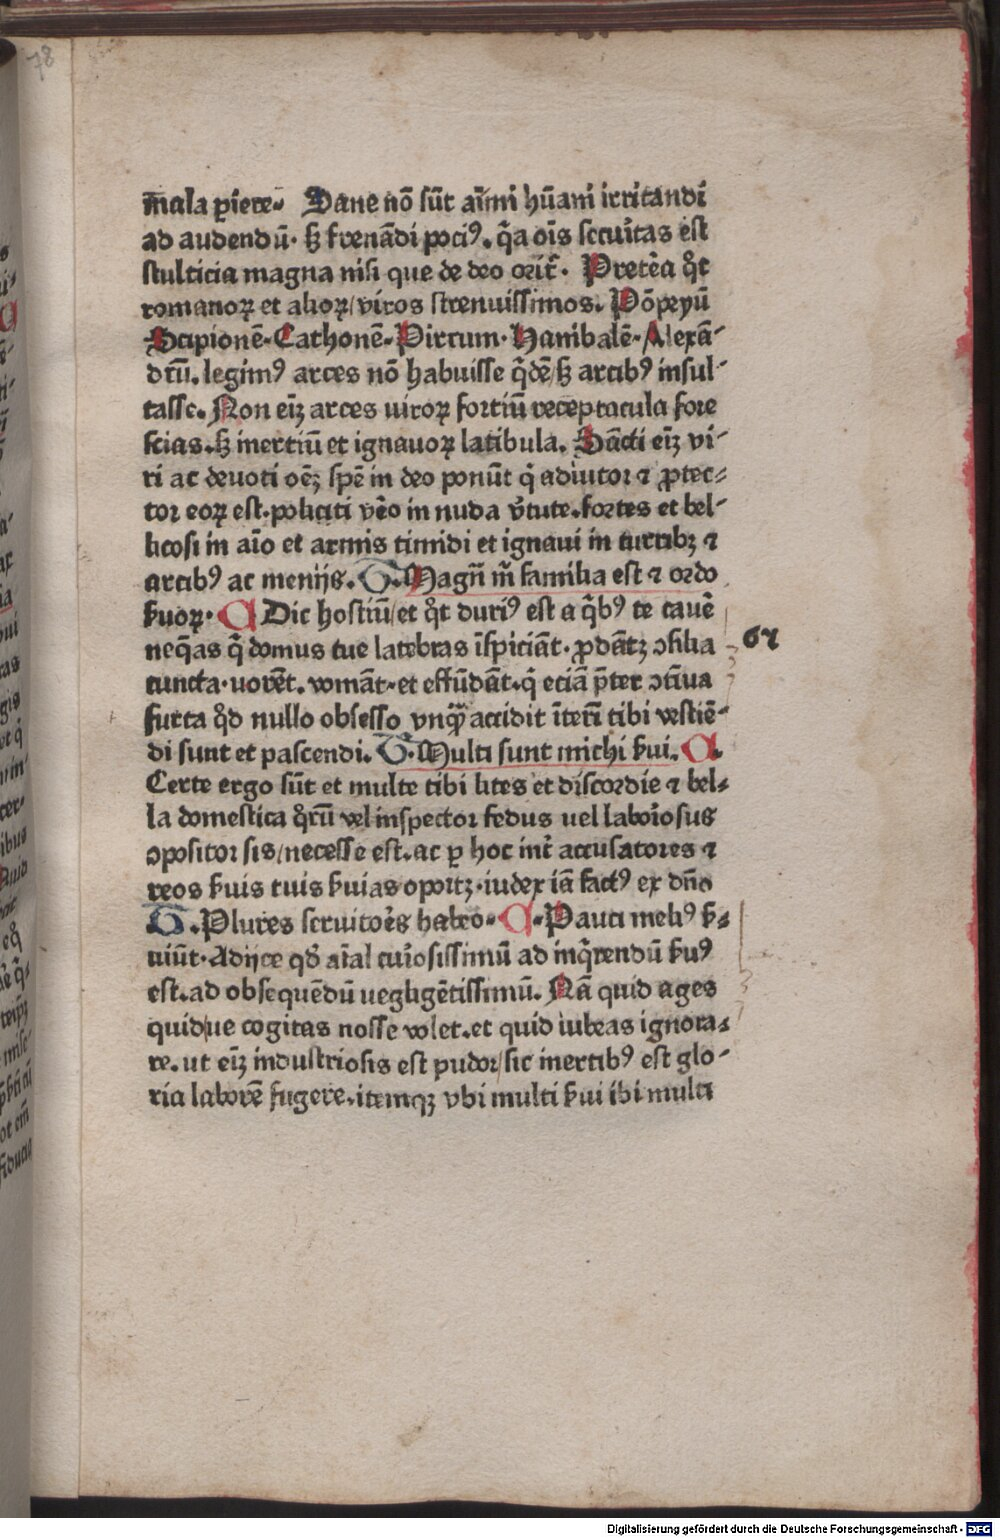 78
mala ꝑiere. Sane nō sūt aīmi hūani irritandi
ad audendū. sꝫ frenādi pociꝰ. q̄a oīs securitas est
stulticia magna nisi que de deo orit̄. Preteā qͦt
romanoꝝ et alioꝝ/viros strenuissimos. Pōpeyū
Scipionē. Cathonē. Pirrum. Hanibalē. Alexā-
dꝛū. legimꝰ arces nō habuisse qͥdē/sꝫ arcibꝰ insul-
tasse. Non eīꝫ arces viroꝝ fortiū receptacula fore
scias. sꝫ inertiū et ignauoꝝ latibula. Sācti eīꝫ vi-
ri ac deuoti oēꝫ spē in deo ponūt qͥ adiutor ⁊ ꝓtec-
tor eoꝝ est. politici vēo in nuda v̄tute. fortes et bel-
licosi in aīo et armis timidi et ignaui in turribꝫ ⁊
arcibꝰ ac menijs. G. Magn̄ m̄ familia est ⁊ ordo
ẜuoꝝ. Dic hostiū/et qͦt duriꝰ est a qͥbꝰ te cauē
neq̄as qͥ domus tue latebras īspiciāt. ꝓdātꝫ ↄsilia
cuncta. vorēt. vomāt. et effūdāt. qͥ eciā p̄ter ↄtīua
furta qͦd nullo obsesso vnqꝫ̄ accidit īterī tibi vestiē-
di sunt et pascendi. G. Multi sunt michi ẜui.
Certe ergo sūt et multe tibi lites et discordie ⁊ bel-
la domestica qͦrū vel inspector fedus uel laboīosus
ↄpositor sis/necesse est. ac ꝑ hoc int̄ accusatores ⁊
reos ẜuis tuis ẜuias oportꝫ. iudex iā factꝰ ex dn̄o
G. Plures seruitoēs habeo. Pauci meliꝰ ẜ-
uiūt. Adijce qd̄ aīal cuīosissimū ad inqͥrendū ẜuꝰ
est. ad obsequēdū negligētissimū. Nā quid ages
quid/ue cogitas nosse volet. et quid iubeas ignora-
re. ut eīꝫ industriosis est pudor/sic inertibꝰ est glo-
ria laborē fugere. itemqꝫ vbi multi ẜui ibi multi
67
Digitalisierung gefördert durch die Deutsche Forschungsgemeinschaft - DFG